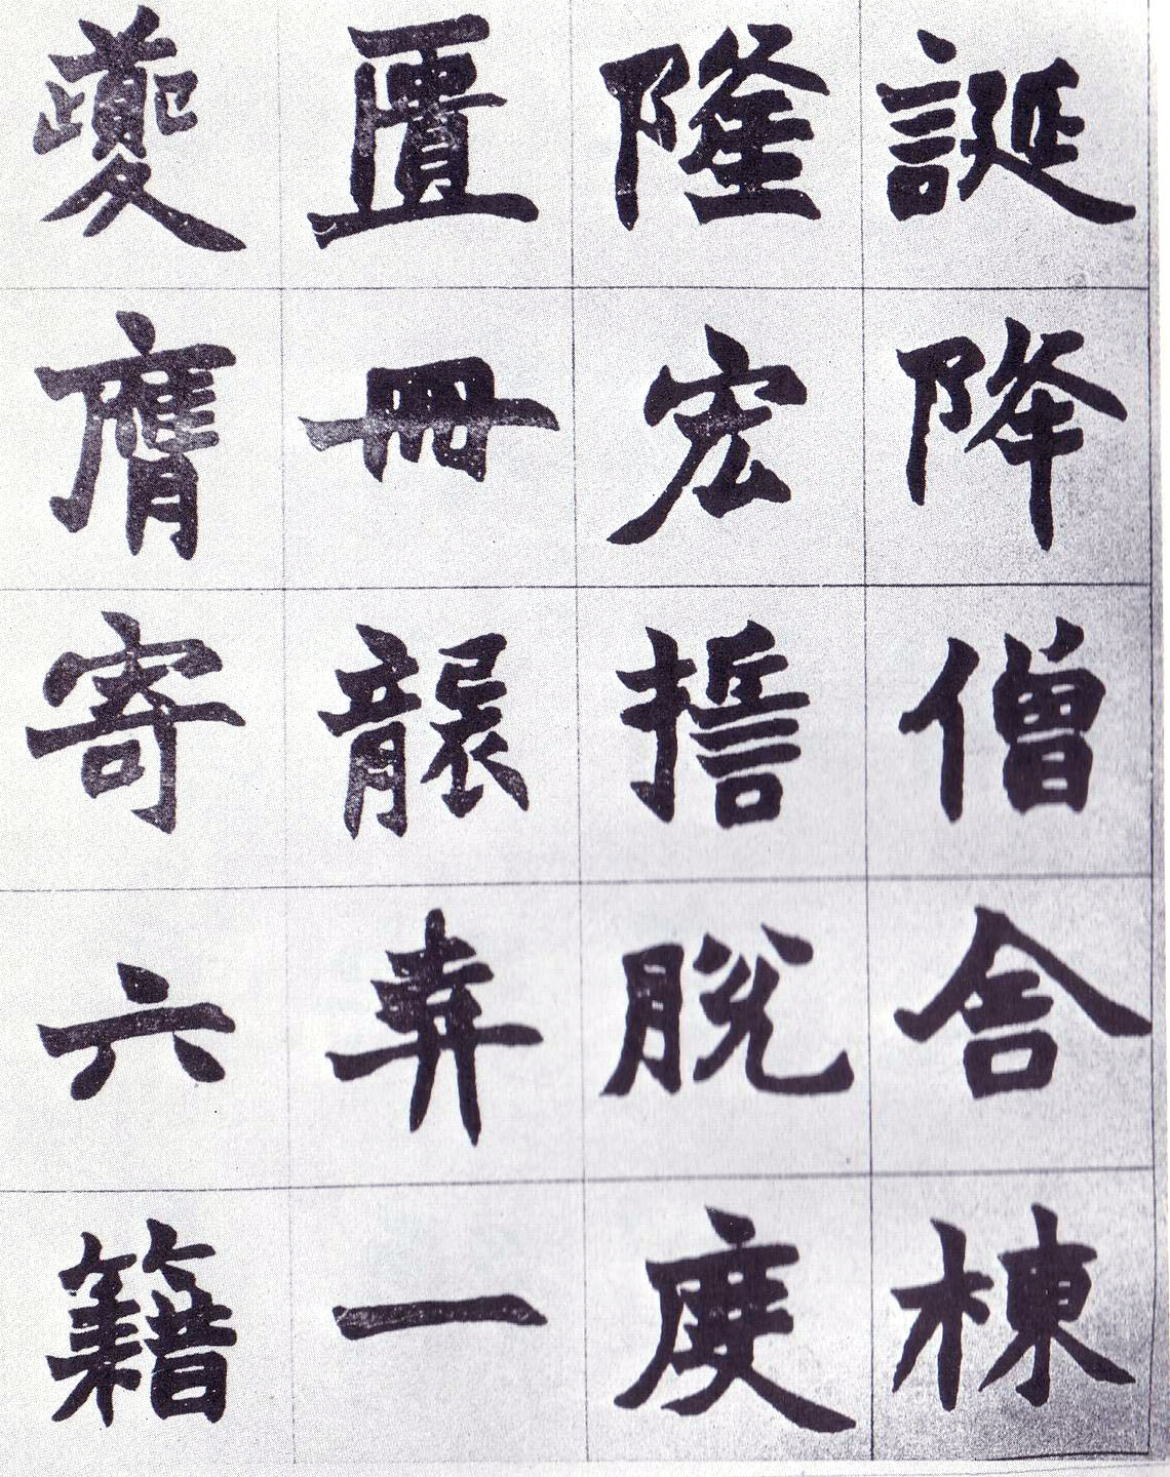 誕降僧舍棟
隆宏誓脫度
匱冊襲一
夔膺寄六籍